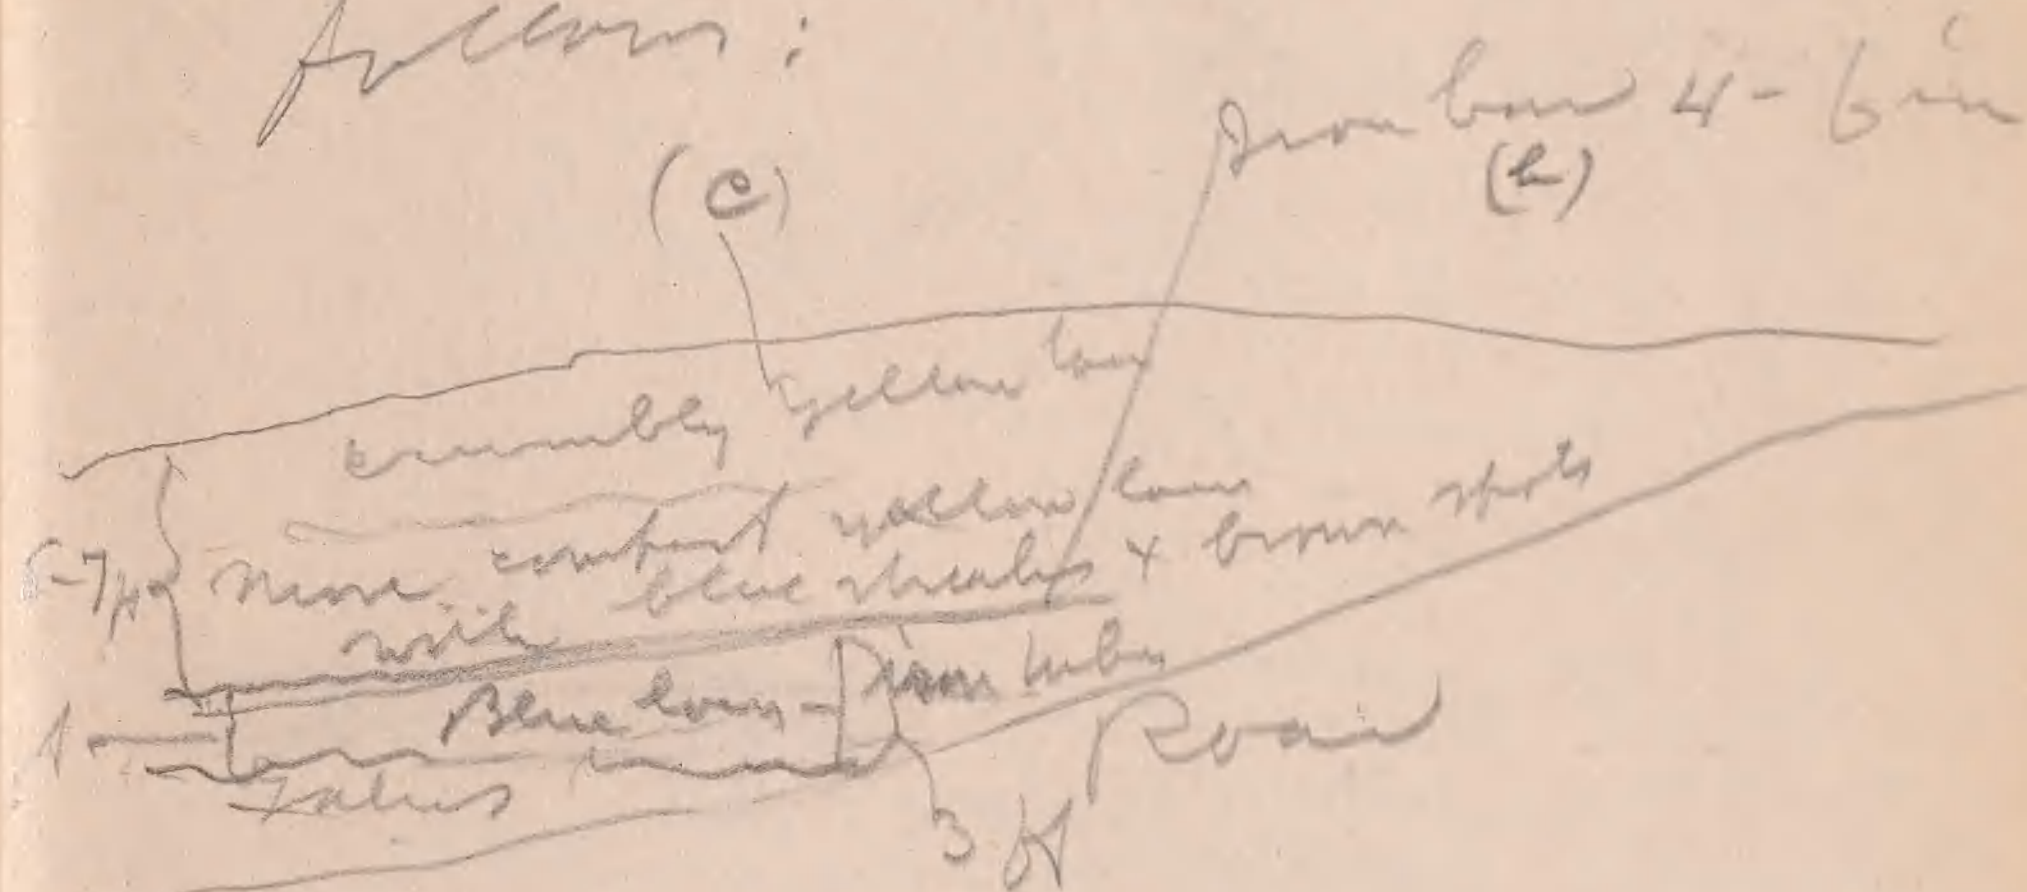 follows:
Iron bar 4-6 in
(c)
(b)
crumbly yellow loam
more compact yellow loam
with blue streaks & brown spots
6-7 ft
Blue loam - Iron tubes
1
Talus
Road
3 ft